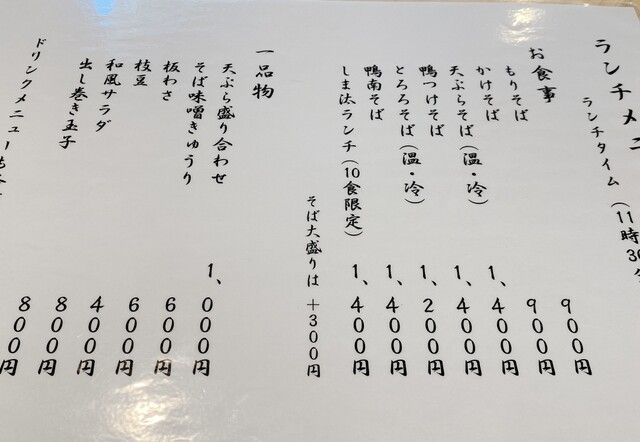 ランチメニ
ランチタイム（11時30
お食事
もりそば 900円
かけそば 900円
天ぷらそば（温・冷） 1、400円
鴨つけそば 1、400円
とろろそば（温・冷） 1、200円
鴨南そば 1、400円
しま汰ランチ（10食限定） 1、400円
そば大盛りは ＋300円
一品物
天ぷら盛り合わせ 1、000円
そば味噌きゅうり 600円
板わさ 600円
枝豆 400円
和風サラダ 800円
出し巻き玉子 800円
ドリンクメニューも